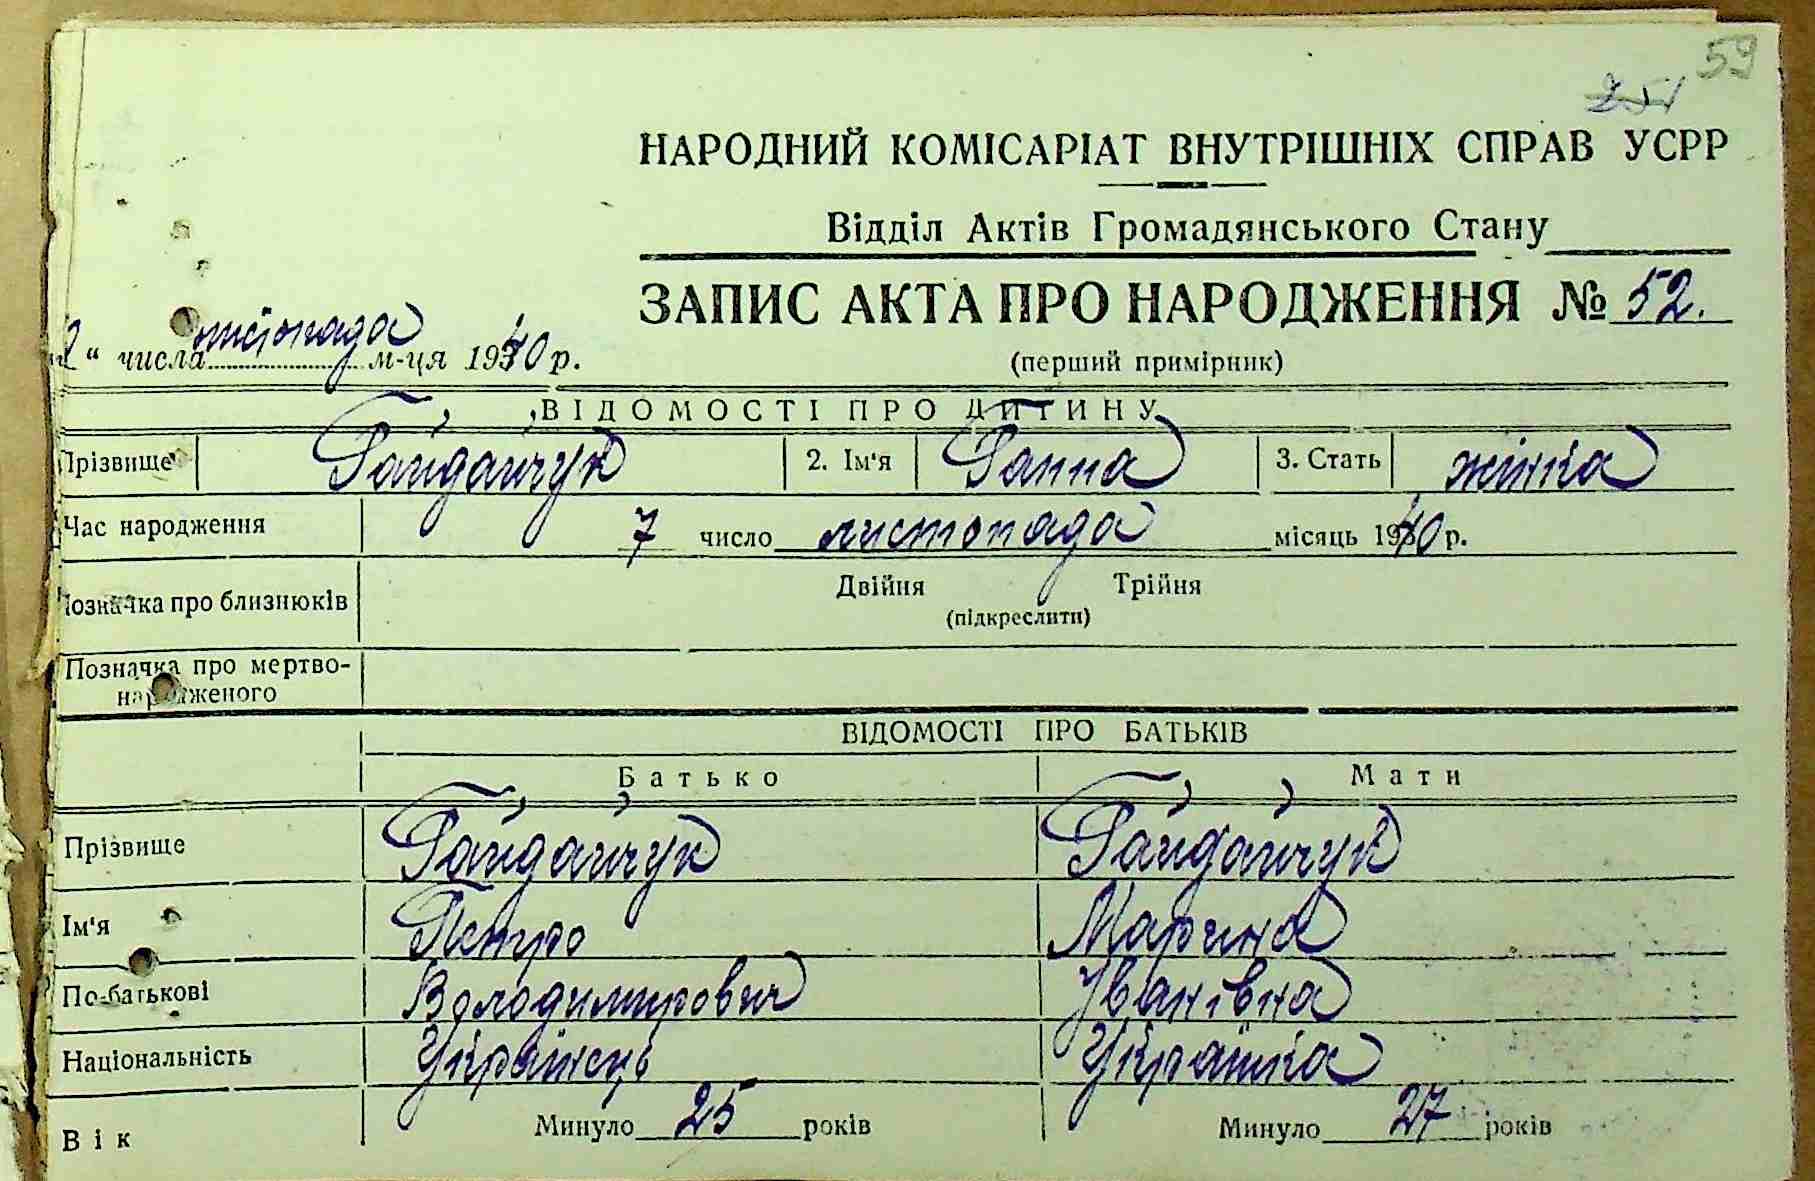 59
251
НАРОДНИЙ КОМІСАРІАТ ВНУТРІШНІХ СПРАВ УСРР
Відділ Актів Громадянського Стану
ЗАПИС АКТА ПРО НАРОДЖЕННЯ № 52.
(перший примірник)
" числа листопада м-ця 1940 р.
ВІДОМОСТІ ПРО ДИТИНУ
Прізвище Гайдайчук 2. Ім'я Ганна 3. Стать жінка
Час народження 7 число листопада місяць 1940 р.
Позначка про близнюків Двійня Трійня
(підкреслити)
Позначка про мертво-
народженого
ВІДОМОСТІ ПРО БАТЬКІВ
Батько Мати
Прізвище Гайдайчук Гайдайчук
Ім'я Петро Марина
По-батькові Володимирович Іванівна
Національність Українець Українка
Вік Минуло 25 років Минуло 27 років